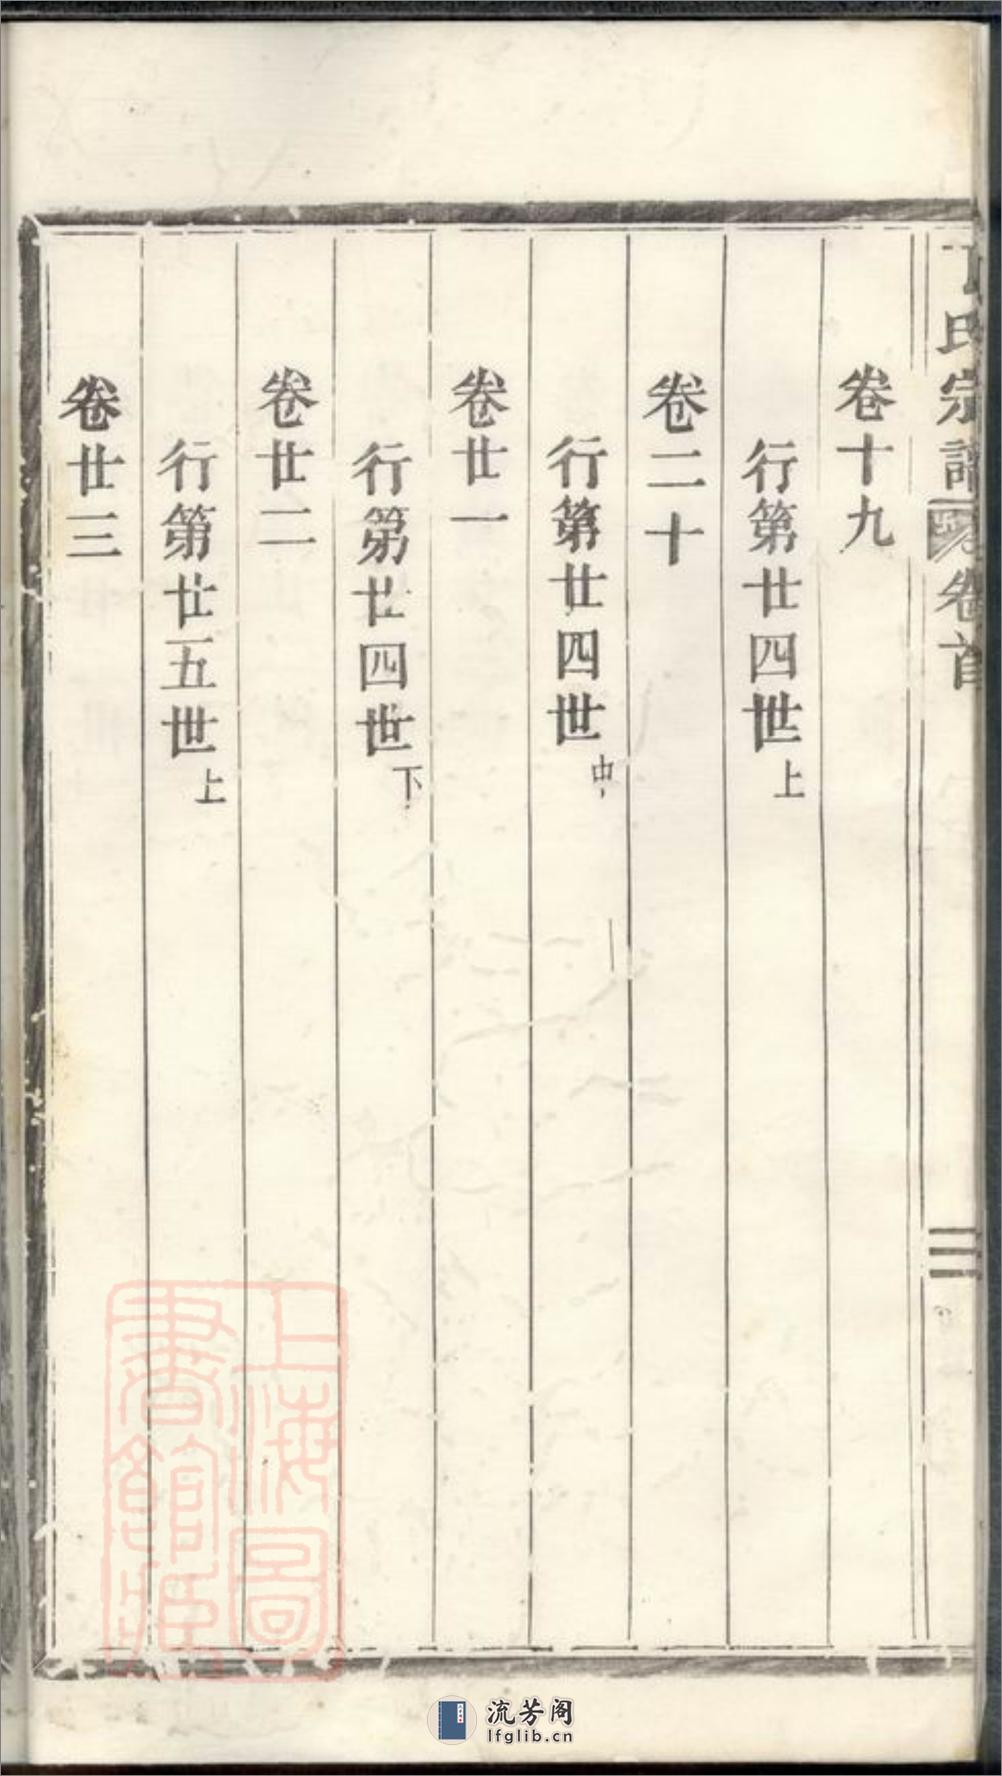 氏宗譜 卷首 三
卷十九
行第廿四世上
卷二十
行第廿四世中
卷廿一
行第廿四世下
卷廿二
行第廿五世上
卷廿三
上海圖
書館藏
流芳阁
lfglib.cn